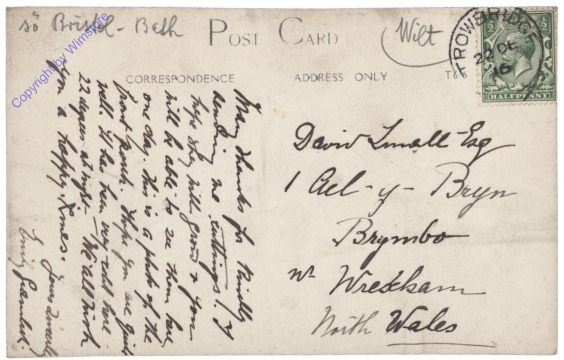 sö Bristol - Bath
POST CARD
Wilt
TROWBRIDGE
22 DE
16
HALFPENNY
CORRESPONDENCE
ADDRESS ONLY
Copyright by Wimstore
Many thanks for kindly
sending me cuttings, I
hope they will grow & you
will be able to see them here
one day. This is a photo of the
front porch. Hope you are quite
well. It has been very cold here -
22 degrees at night - We all wish
you a happy Xmas.
Yours sincerely
Emily
David Small Esq
1 Ael-y-Bryn
Brymbo
Nr Wrexham
North Wales